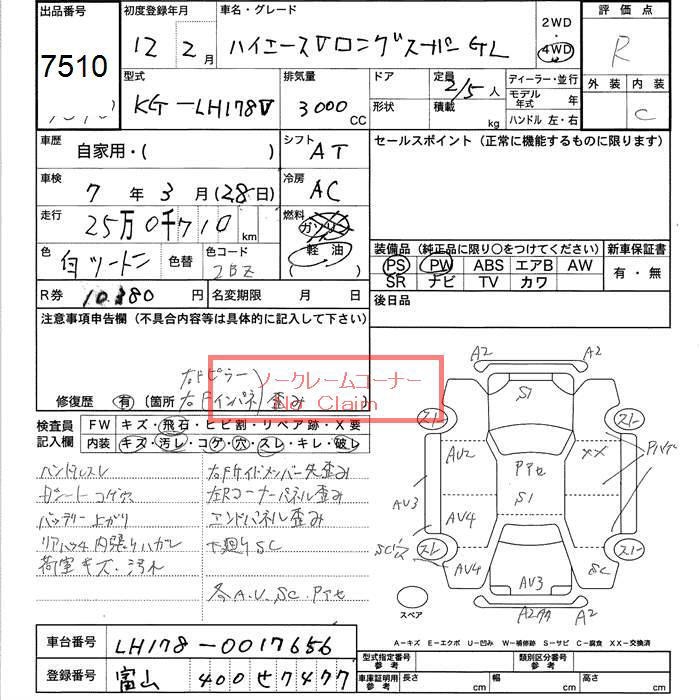 出品番号 初度登録年月 車名・グレード 2WD 評価点
7510 12 2月 ハイエースVロングスーパーGL 4WD R
型式 排気量 ドア 定員 ディーラー・並行 外装 内装
KG-LH178V 3000 CC 2/5人 モデル年式 年 C
形状 積載 kg ハンドル 左・右
車歴 自家用・( ) シフト AT セールスポイント (正常に機能するものに限ります)
車検 7年3月(28日) 冷房 AC
走行 25万0千710 km 燃料 ガソリン 軽油
色 白ツートン 色替 色コード 2BZ
装備品 (純正品に限り○をつけてください) 新車保証書
PS PW ABS エアB AW 有・無
SR ナビ TV カワ
R券 10380円 名変期限 月 日 後日品
注意事項申告欄 (不具合内容等は具体的に記入して下さい)
右Fピラー
修復歴 有 (箇所 右Fインパネ 歪み
ノークレームコーナー
No Claim
検査員記入欄 FW キズ・飛石・ヒビ割・リペア跡・X要
内装 キズ・汚レ・コゲ・穴・スレ・キレ・破レ
ハンドルスレ 右Fサイドメンバー先歪み
Dシートコゲ穴 左Rコーナーパネル歪み
バッテリー上がり エンドパネル歪み
リアハッチ内張りハガレ 下廻りSC
荷室キズ・汚れ
各A.U.SC.Pアセ
A2 A2
S1
スレ スレ
AU2 Pアセ XX
AU3 S1
AU4
スレ スレ
AU4 SC
AU3
A2 A2
スペア
A-キズ E-エクボ U-凹み W-補修跡 S-サビ C-腐食 XX-交換済
車台番号 LH178-0017656
型式指定番号 参考 類別区分番号 参考
登録番号 富山 400せ7477
車庫証明用 参考 長さ cm 幅 cm 高さ cm